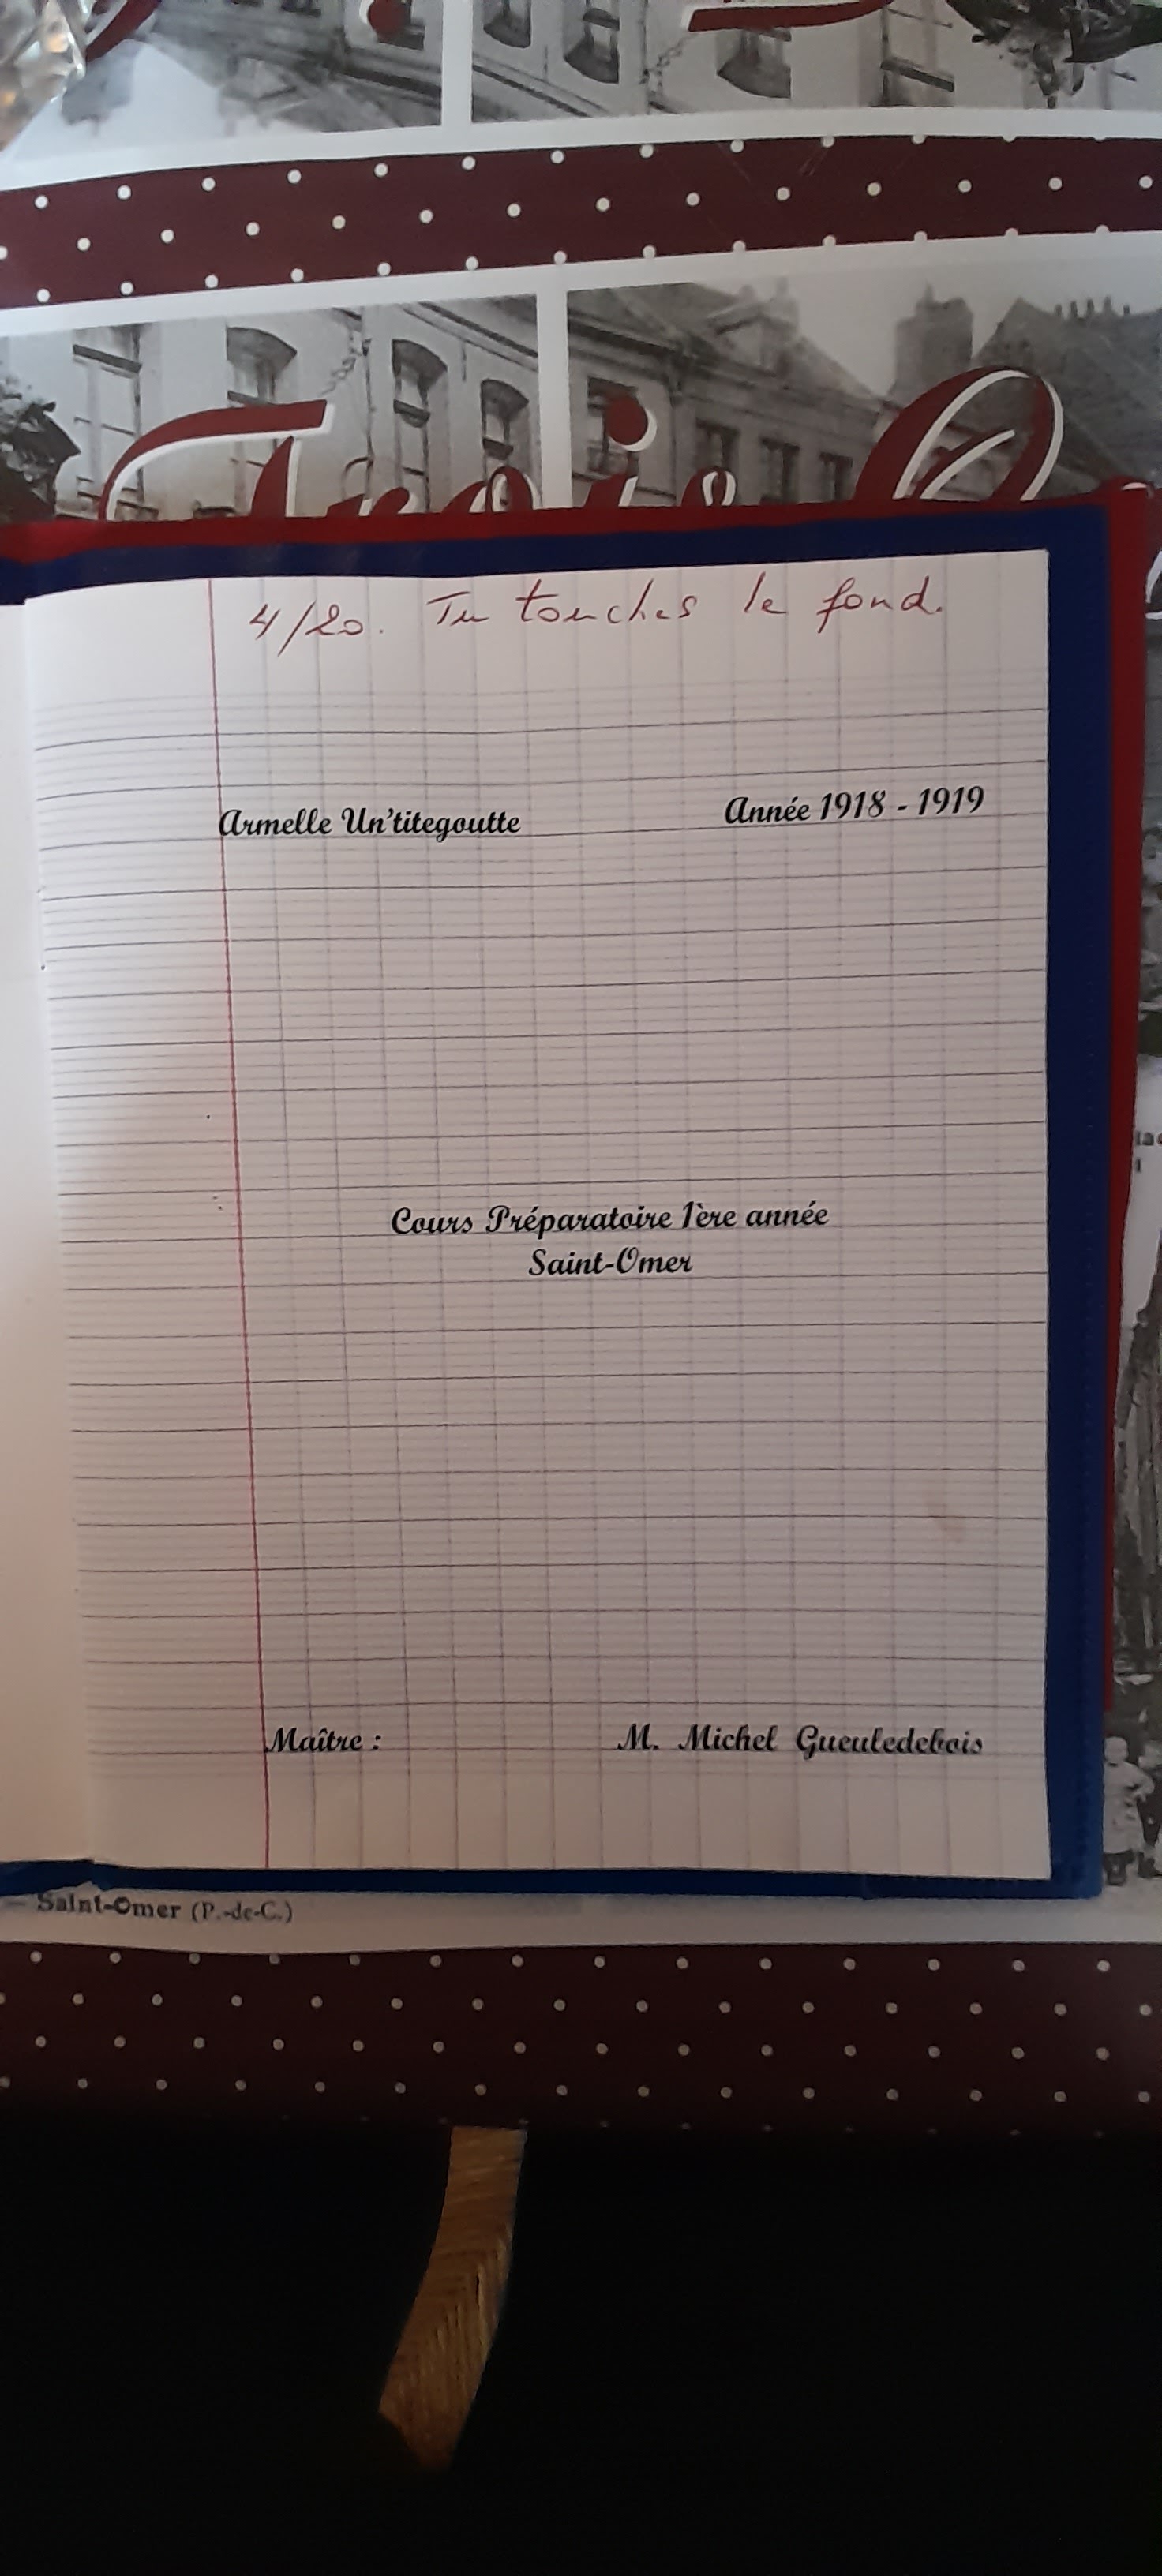 4/20. Tu touches le fond.
Armelle Un'titegoutte Année 1918 - 1919
Cours Préparatoire 1ère année
Saint-Omer
Maître : M. Michel Gueuledebois
Saint-Omer (P.-de-C.)